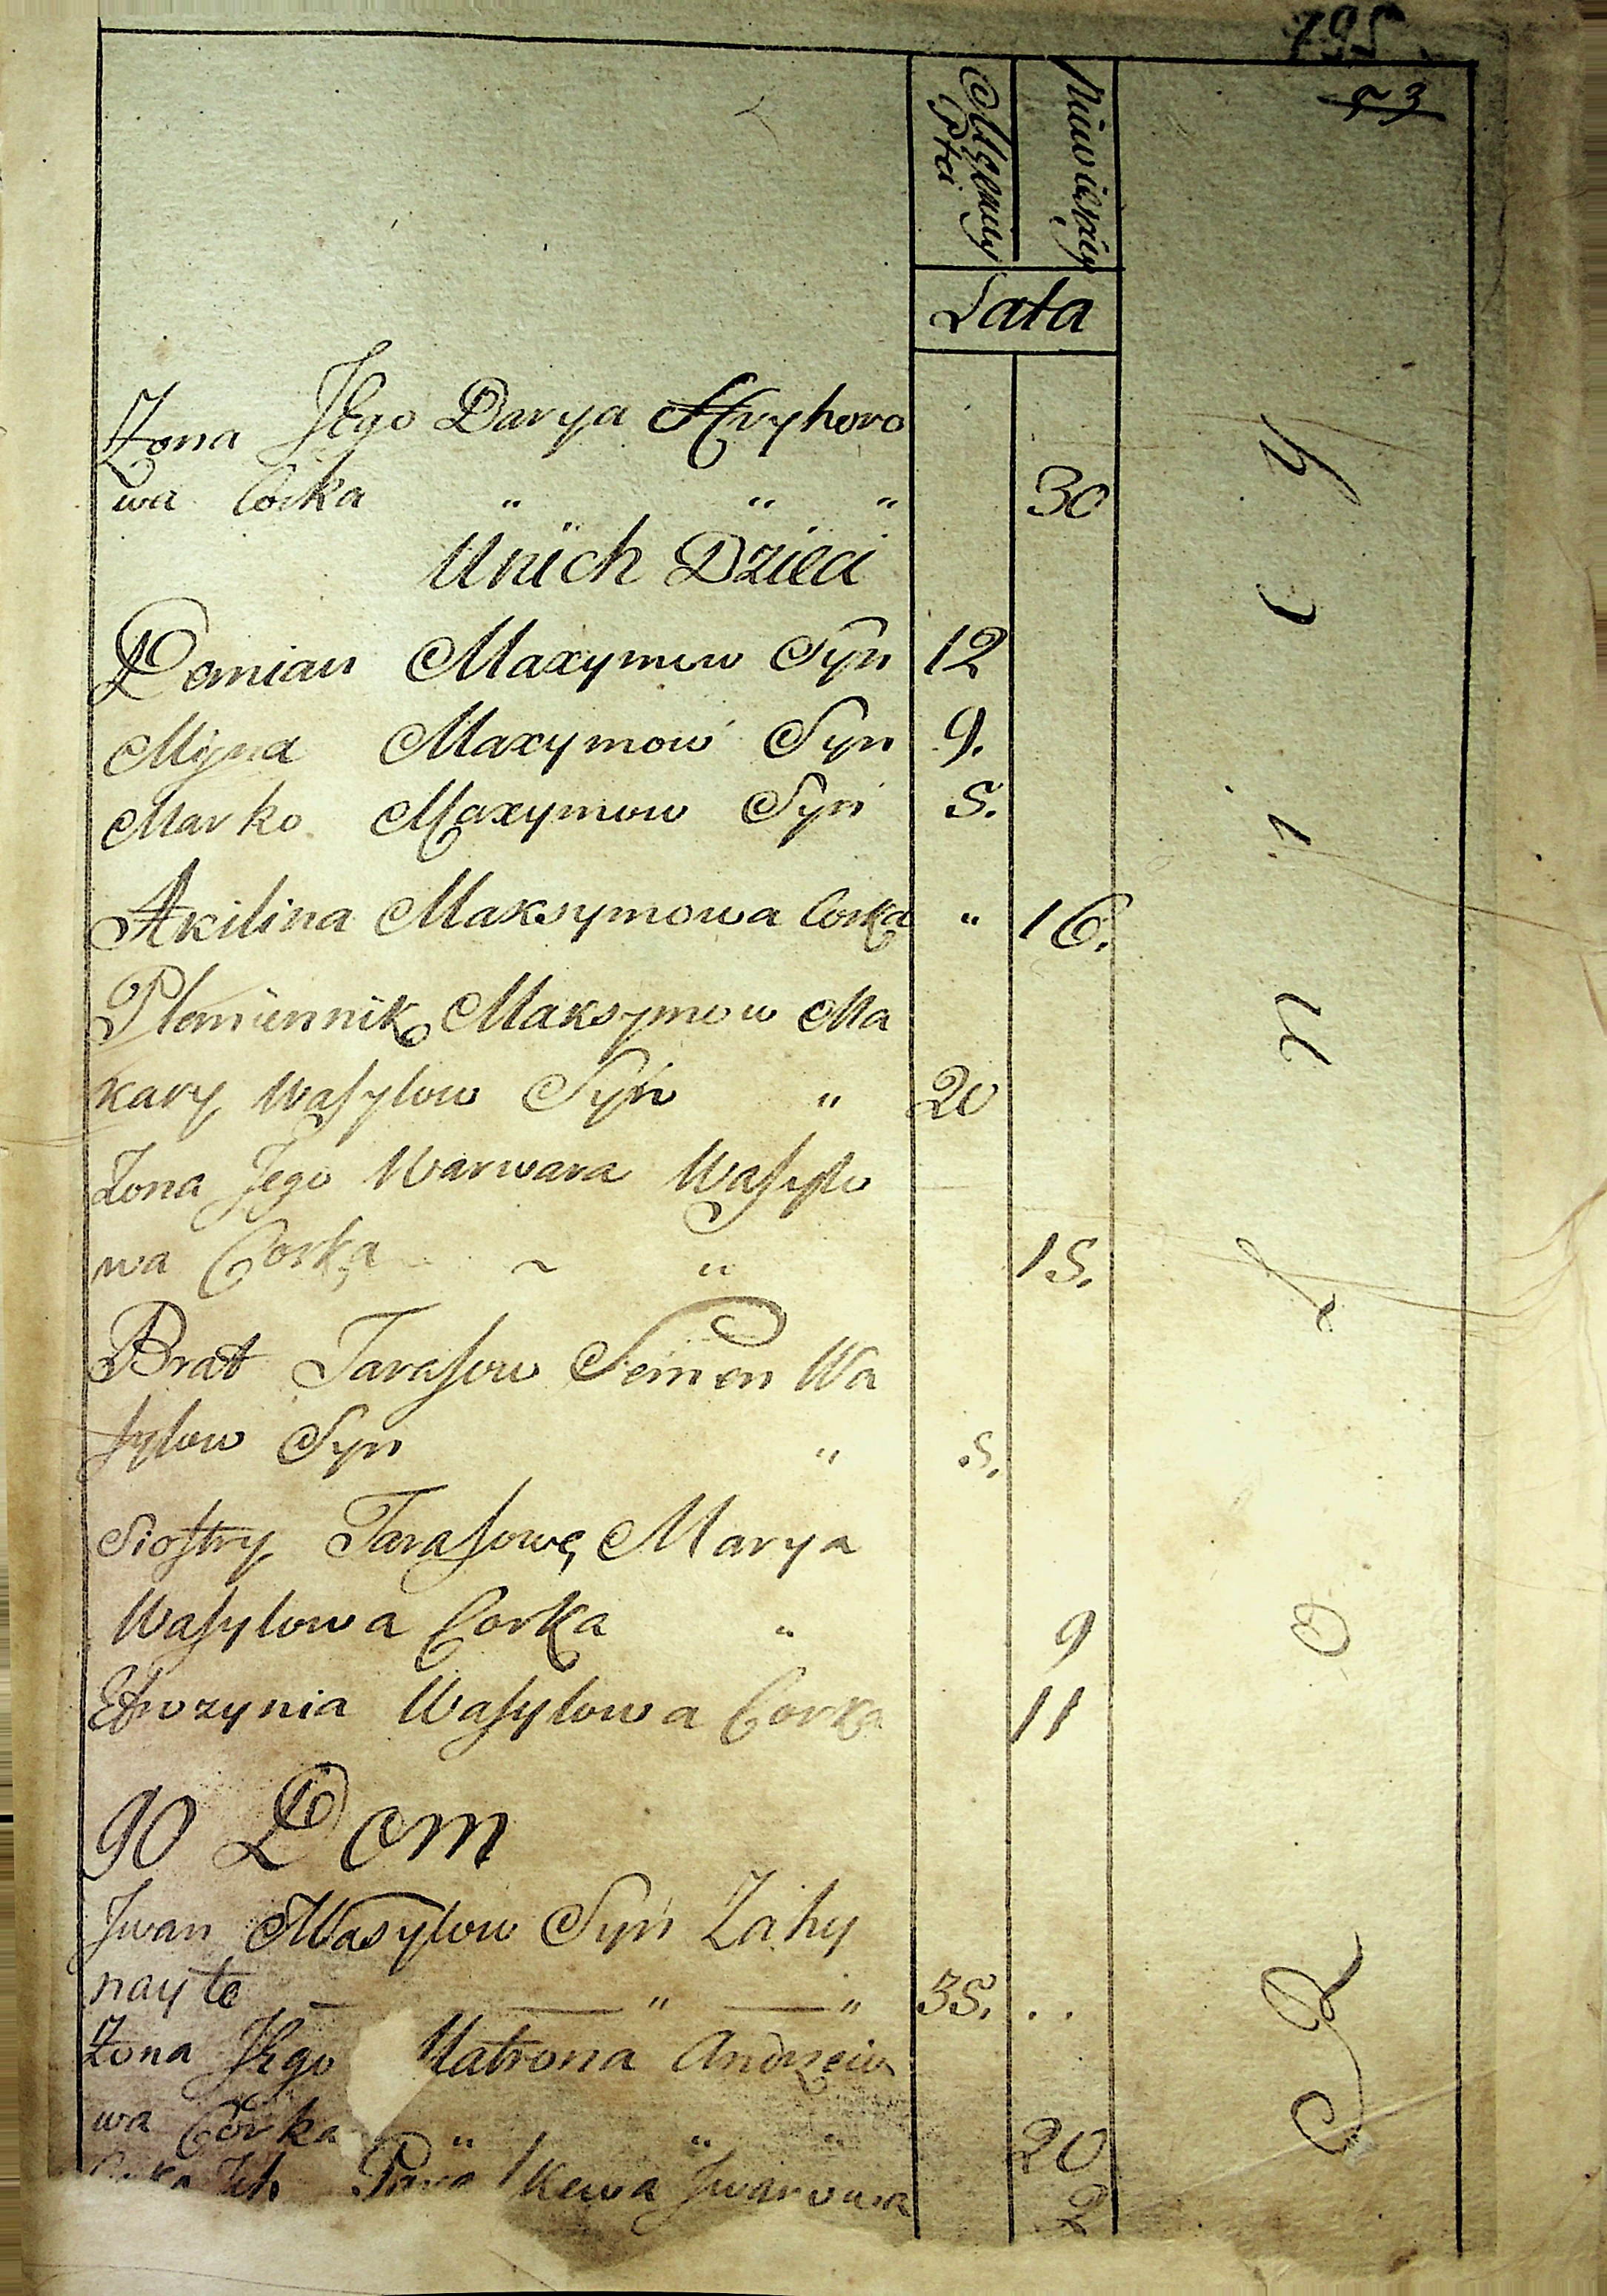 795
53
Męzkiey Płci
Niewieściey
Lata
Żona Jego Darya Hryhoro
wa Corka " " " 30
U nich Dzieci
Demian Maxymow Syn 12
Mina Maxymow Syn 9.
Marko Maxymow Syn 5.
Akilina Maksymowa Corka " 16.
Plemiennik Maksymow Ma
kary Wasylow Syn " 20
Żona Jego Warwara Wasylo
wa Corka ~ " 15.
Brat Tarasow Semen Wa
sylow Syn " 5.
Siostry Tarasowe Marya
Wasylowa Corka " 9
Ewrzynia Wasylowa Corka 11
90 Dom
Jwan Wasylow Syn Zahy
nayło — — " — " 35. . .
Żona Jego Matrona Andrzeio
wa Córka " " " 20
Jch Jwanowa 2
R o l n i c y